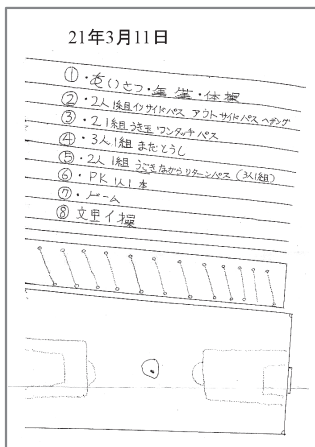 21年3月11日
① ・あいさつ・集合・体操
② ・2人1組インサイドパス アウトサイドパス ヘディング
③ ・2 1組 うき玉 ワンタッチパス
④ ・3人1組 またどうし
⑤ ・2人1組 うごきながらリターンパス (3人1組)
⑥ ・PK 1人1本
⑦ ・ゲーム
⑧